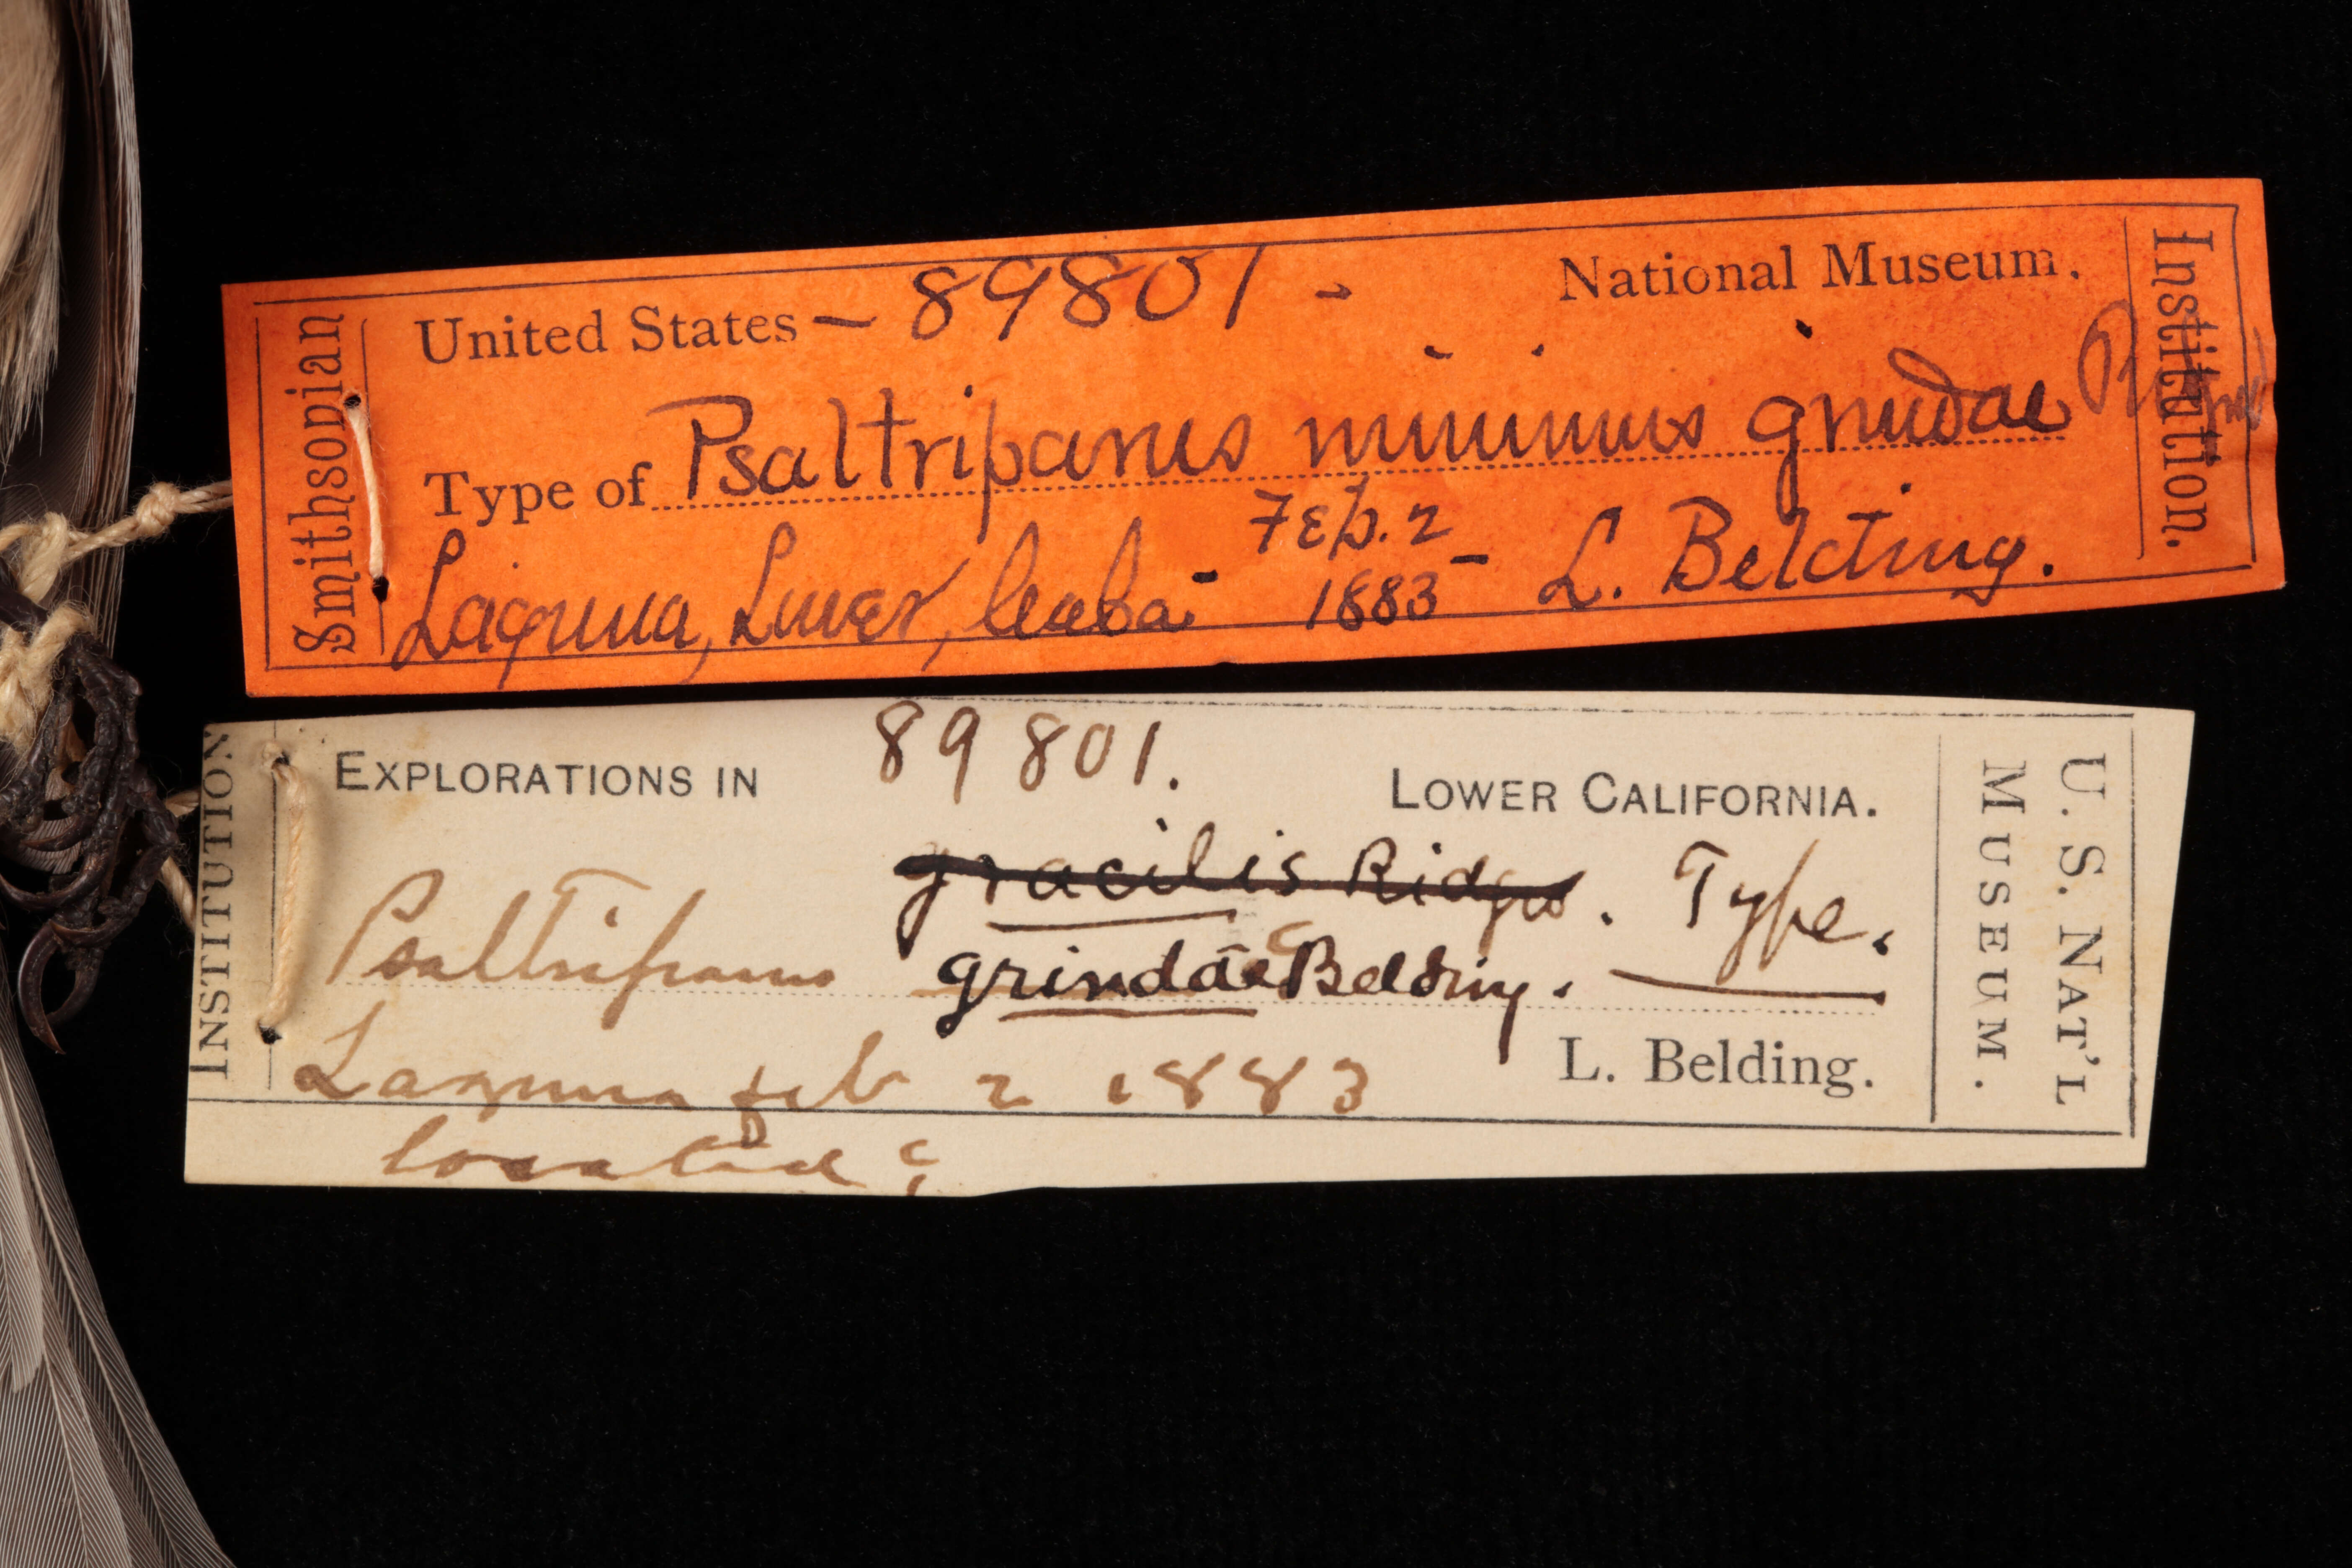 Smithsonian
United States – 89801 - National Museum.
Type of Psaltriparus minimus grindae
Laguna, Lower, Cala. - Feb. 2 1883 - L. Belding.
Institution.
INSTITUTION
EXPLORATIONS IN 89801. LOWER CALIFORNIA.
gracilis Ridgw. Type.
Psaltriparus grindae Belding.
Laguna feb 2 1883 L. Belding.
U. S. NAT'L
MUSEUM.